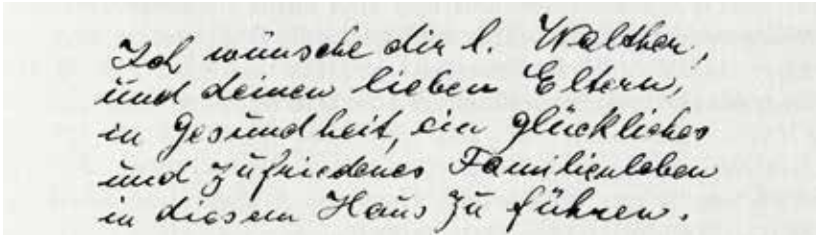 Ich wünsche dir l. Walther,
und deinen lieben Eltern,
in Gesundheit, ein glückliches
und zufriedenes Familienleben
in diesem Haus zu führen.